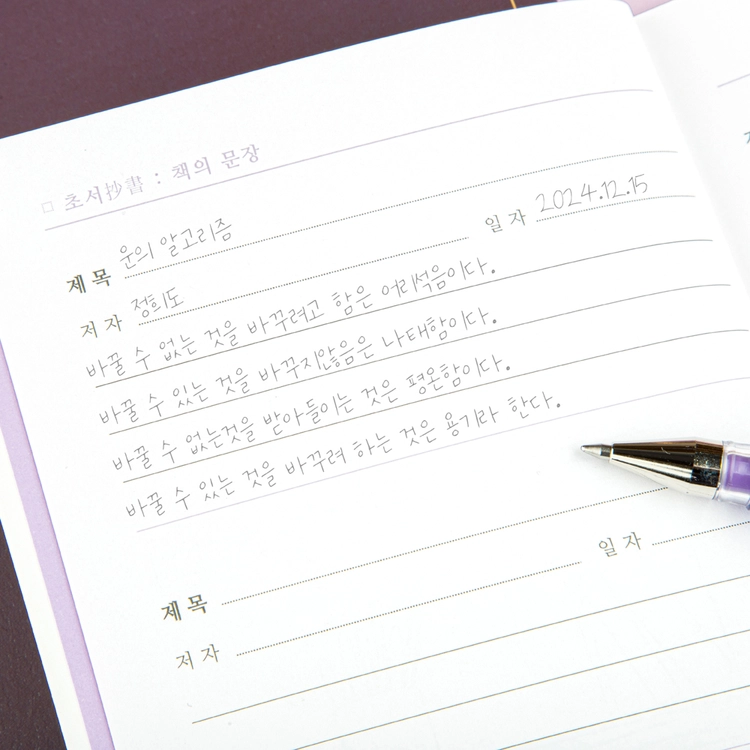 □ 초서抄書 : 책의 문장
제목 운의 알고리즘
저자 정회도 일자 2024.12.15
바꿀 수 없는 것을 바꾸려고 함은 어리석음이다.
바꿀 수 있는 것을 바꾸지않음은 나태함이다.
바꿀 수 없는것을 받아들이는 것은 평온함이다.
바꿀 수 있는 것을 바꾸려 하는 것은 용기라 한다.
제목
저자 일자